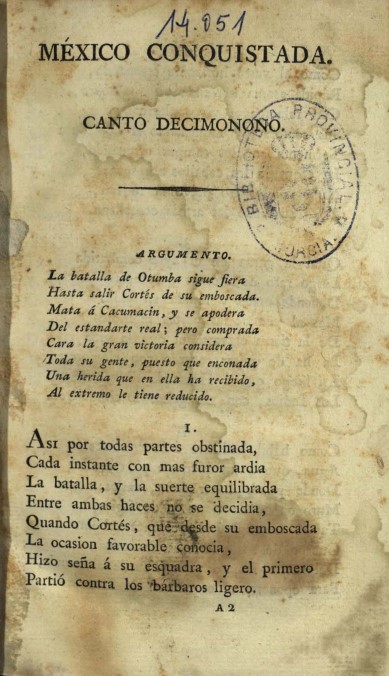 14.051
MÉXICO CONQUISTADA.
CANTO DECIMONONO.
BIBLIOTECA PROVINCIAL
MURCIA.
ARGUMENTO.
La batalla de Otumba sigue fiera
Hasta salir Cortés de su emboscada.
Mata á Cacumacin, y se apodera
Del estandarte real; pero comprada
Cara la gran victoria considera
Toda su gente, puesto que enconada
Una herida que en ella ha recibido,
Al extremo le tiene reducido.
I.
Asi por todas partes obstinada,
Cada instante con mas furor ardia
La batalla, y la suerte equilibrada
Entre ambas haces no se decidia,
Quando Cortés, que desde su emboscada
La ocasion favorable conocia,
Hizo seña á su esquadra, y el primero
Partió contra los bárbaros ligero.
A 2